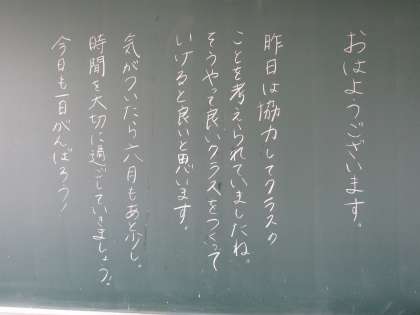 おはようございます。
昨日は協力してクラスの
ことを考えられていましたね。
そうやって良いクラスをつくって
いけると良いと思います。
気がついたら六月もあと少し。
時間を大切に過ごしていきましょう。
今日も一日がんばろう！